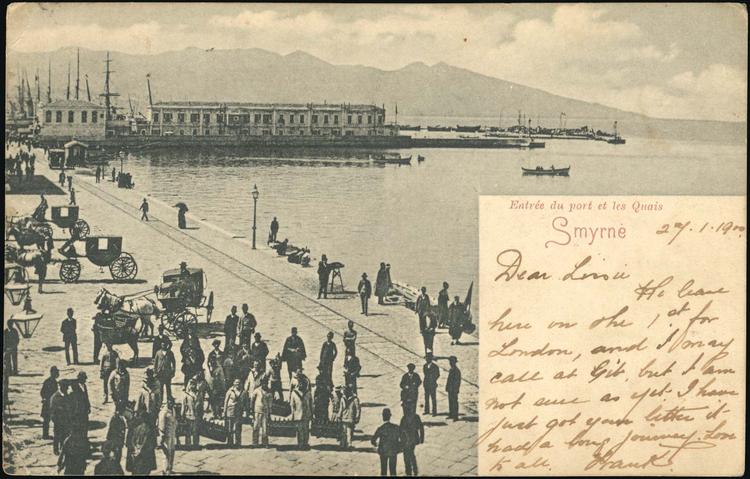 Entrée du port et les Quais
Smyrne
27.1.1900
Dear
We leave
here on the 1st for
London, and I may
call at Gib. but I am
not sure as yet. I have
just got your letter it
had a long journey. Love
to all. Frank.